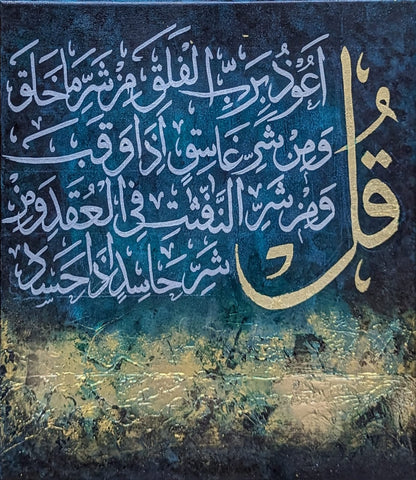 قُل
اَعُوْذُ بِرَبِّ الْفَلَقِ مِنْ شَرِّ مَا خَلَقَ
وَمِنْ شَرِّ غَاسِقٍ اِذَا وَقَبَ
وَمِنْ شَرِّ النَّفّٰثٰتِ فِی الْعُقَدِ وَمِنْ
شَرِّ حَاسِدٍ اِذَا حَسَدَ